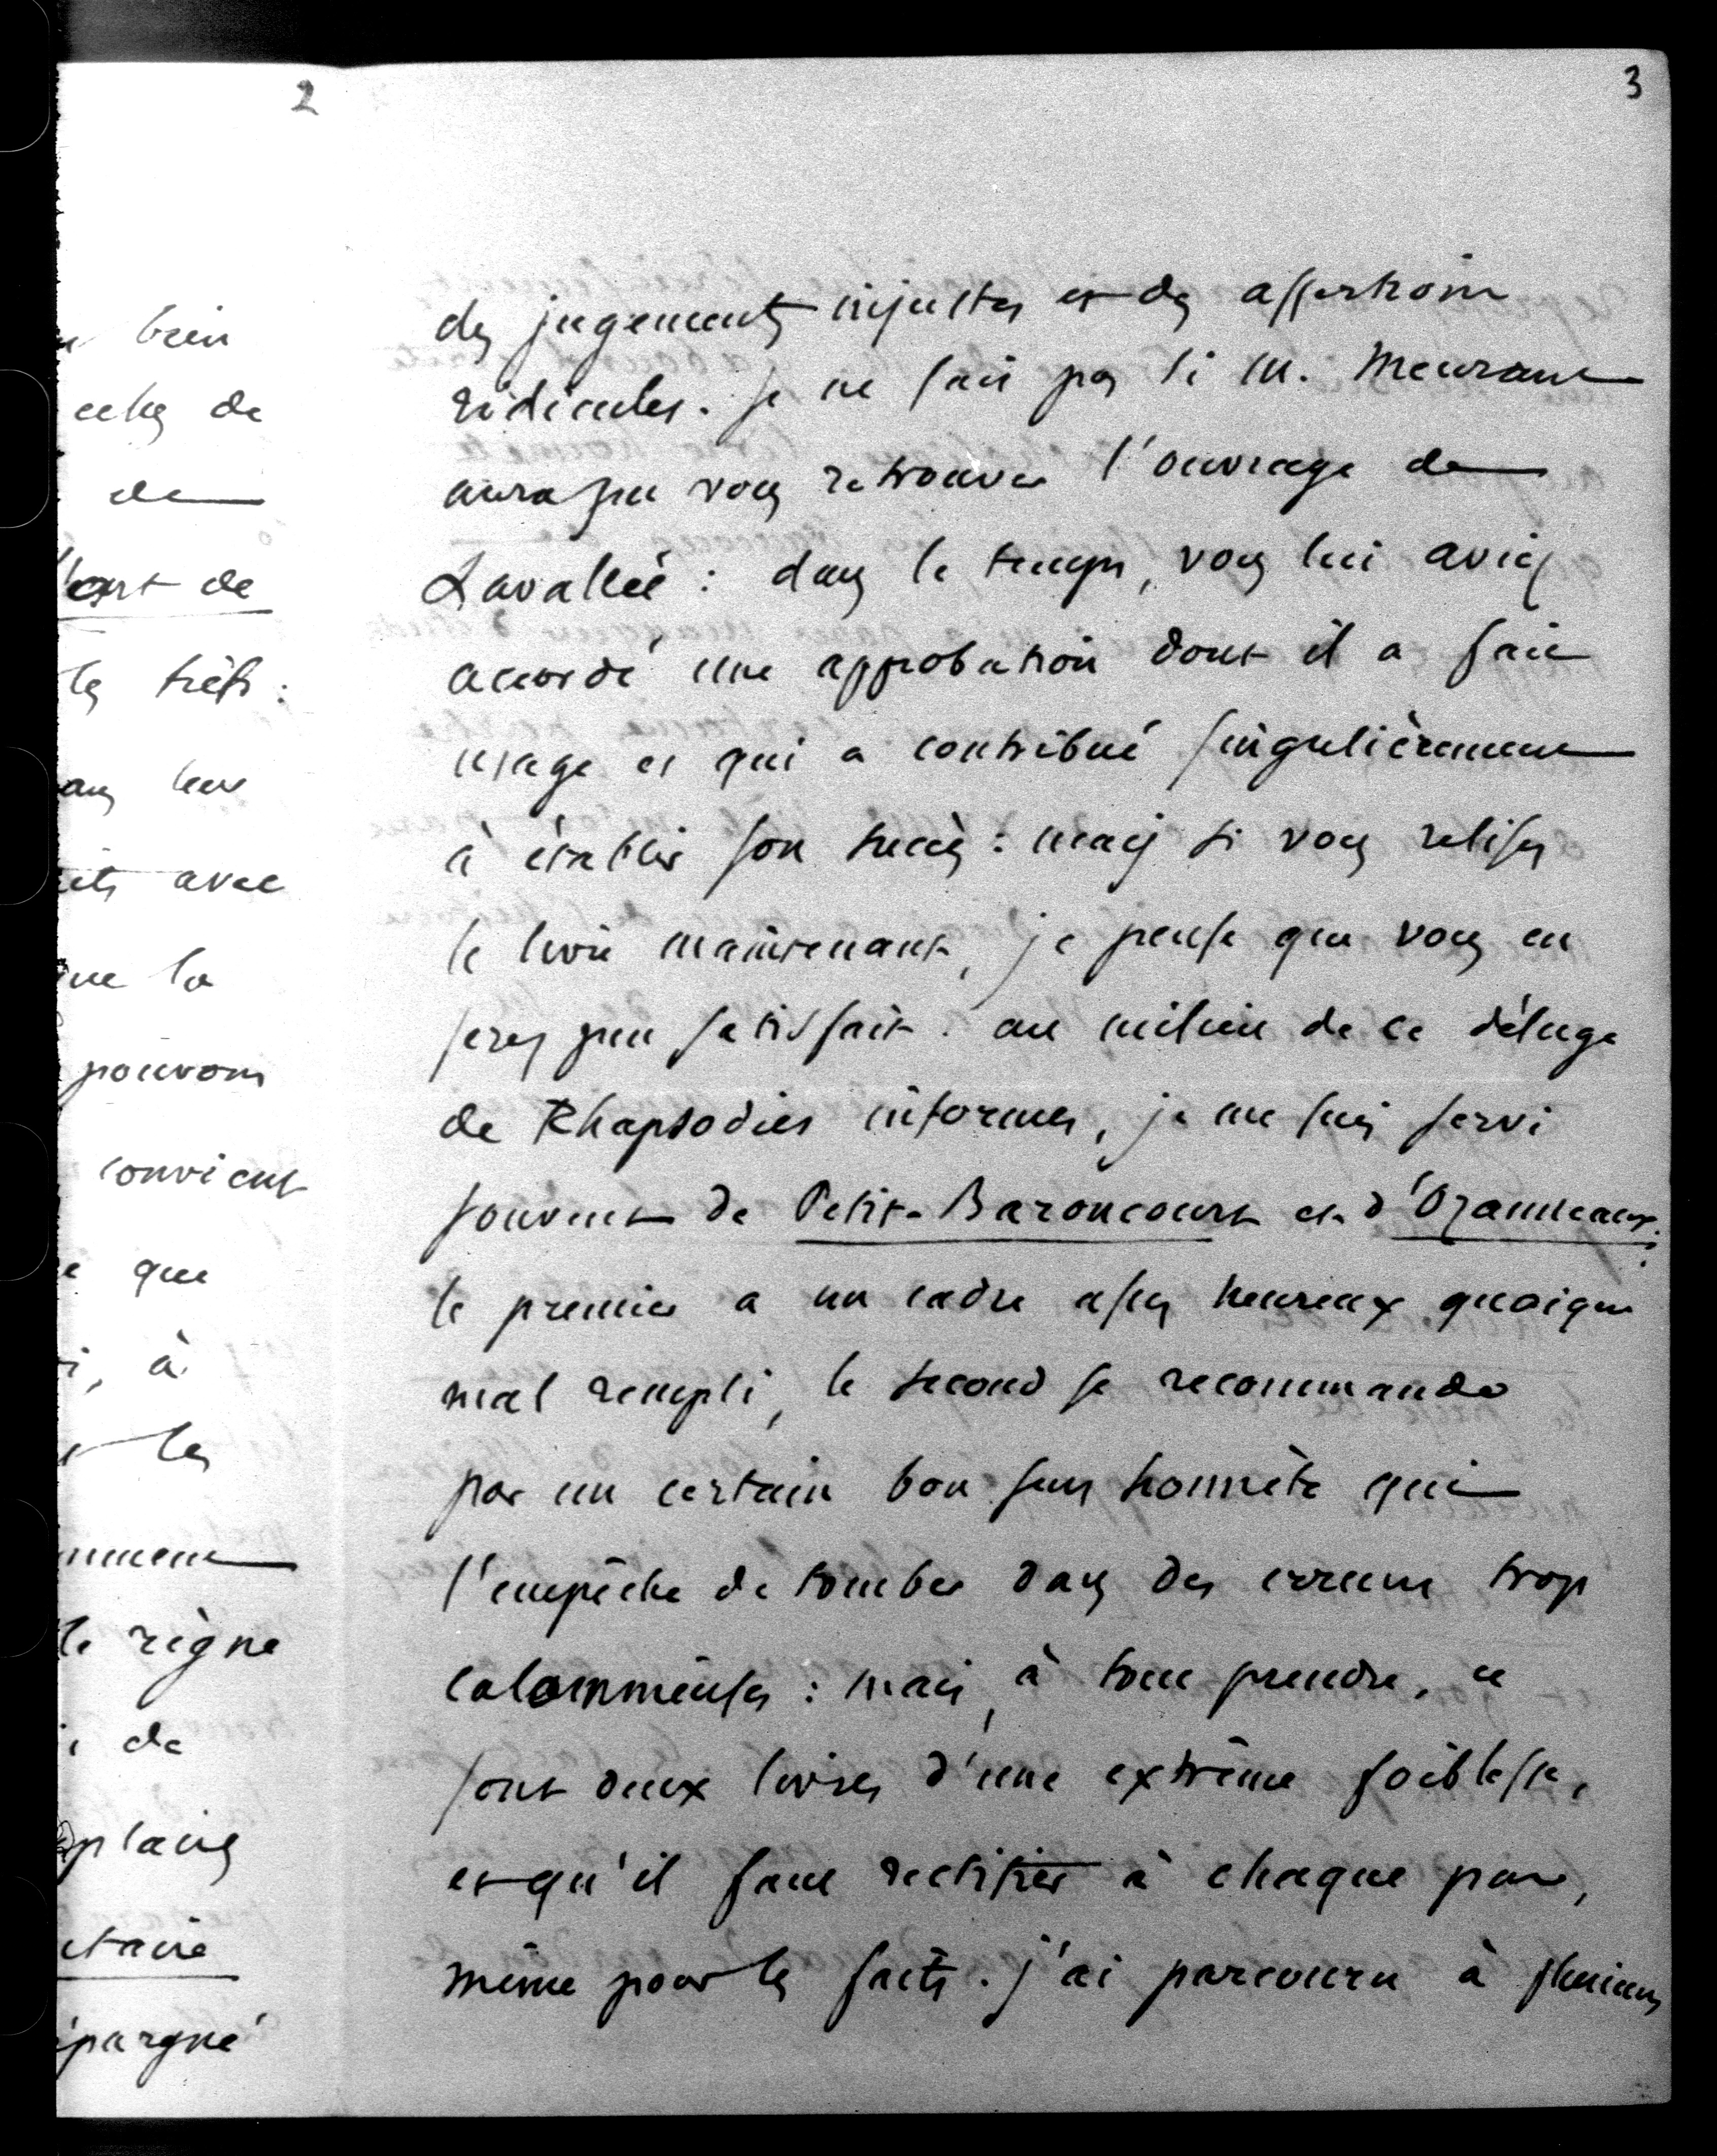 2
n bien
celles de
de
l'art de
les traits :
dans leur
avec
que la
pouvons
convient
que
à
les
mment
le règne
de
plaies
itaire
épargné
3
des jugements injustes et des assertions
ridicules. Je ne sais pas si M. Meurant
aura pu vous retrouver l'ouvrage de
Lavallée : dans le temps, vous lui aviez
accordé une approbation dont il a fait
usage et qui a contribué singulièrement
à établir son succès : mais si vous relisez
le livre maintenant, je pense que vous en
serez peu satisfait. au milieu de ce déluge
de Rhapsodies informes, je me suis servi
souvent de Petit-Baroncourt et d'Ozaneaux ;
le premier a un cadre assez heureux quoique
mal rempli, le second se recommande
par un certain bon sens honnête qui
l'empêche de tomber dans des erreurs trop
calomnieuses : mais, à tout prendre, ce
sont deux livres d'une extrême foiblesse,
et qu'il faut rectifier à chaque pas,
même pour les faits. j'ai parcouru à plusieurs